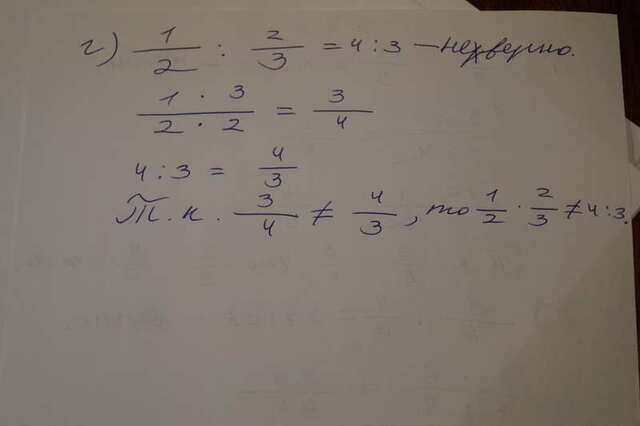 г) 1/2 : 2/3 = 4 : 3 — неверно.
1 · 3 / 2 · 2 = 3/4
4 : 3 = 4/3
Т.к. 3/4 ≠ 4/3, то 1/2 · 2/3 ≠ 4 : 3.